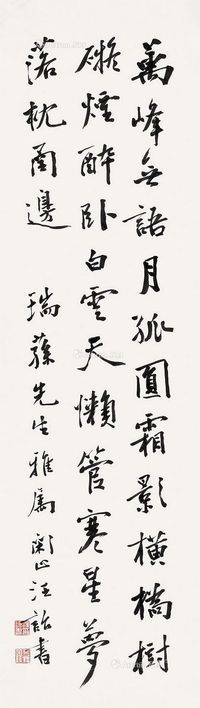 萬峰無語月孤圓霜影橫橋樹
礙煙醉臥白雲天懶管寒星夢
落枕函邊
瑞蓀先生雅屬 汪詒書